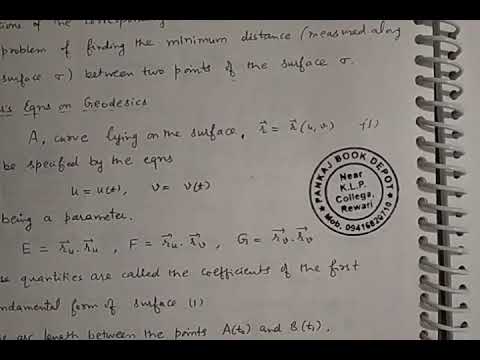 tions of the corresponding
problem of finding the minimum distance (measured along
surface σ) between two points of the surface σ.
's Eqns on Geodesics
A, curve lying on the surface, r⃗ = r⃗ (u,v) (1)
be specified by the eqns
u = u(t), v = v(t)
being a parameter.
E = r⃗u . r⃗u , F = r⃗u . r⃗v , G = r⃗v . r⃗v
se quantities are called the coefficients of the first
ndamental form of surface (1)
arc length between the points A(t₀) and B(t₁),
PANKAJ BOOK DEPOT
Near
K.L.P.
College,
Rewari
Mob. 09416826710